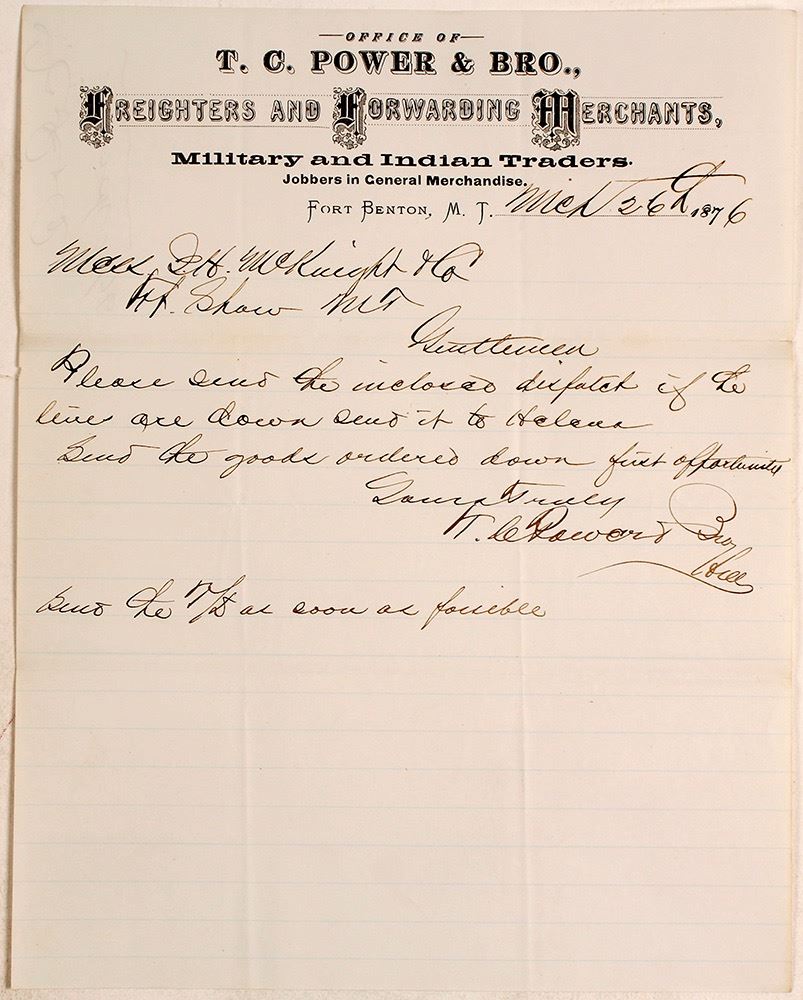 OFFICE OF
T. C. POWER & BRO.,
FREIGHTERS AND FORWARDING MERCHANTS,
Military and Indian Traders.
Jobbers in General Merchandise.
FORT BENTON, M. T. Mch 26th 1876
Mess J.H. McKnight & Co
Ft. Shaw MT
Gentlemen
Please send the inclosed dispatch if the
lines are down send it to Helena
Send the goods ordered down first opportunity
Yours Truly
T. C. Power & Bro
Send the as soon as possible